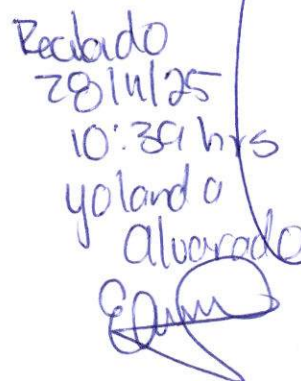 Recibido
28/11/25
10:39 hrs
Yolanda
Alvarado